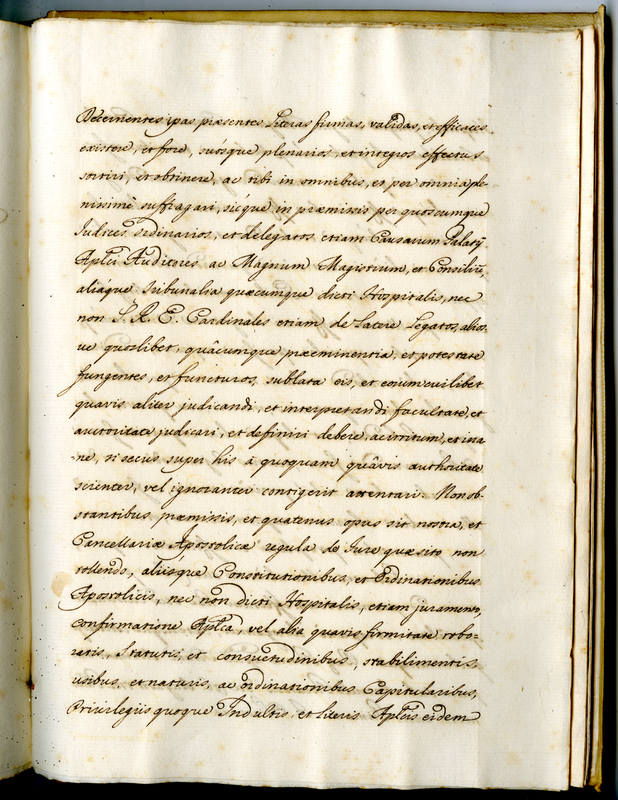 Decernentes ipas præsentes Literas firmas, validas, et efficaces
existere, et fore, suosque plenarios, et integros effectus
sortiri, et obtinere, ac tibi in omnibus, et per omnia ple
nissimè suffragari, sicque in præmissis per quoscumque
Judices ordinarios, et delegatos etiam Causarum Palatÿ
Aplici Auditores ac Magnum Magistrum, et Consiliũ,
aliáque Tribunalia quæcumque dicti Hospitalis, nec
non S. R. E. Cardinales etiam de Latere Legatos, alios
ve quoslibet, quâcumque præeminentia, et potestate
fungentes, et functuros, sublata eis, et eorum cuilibet
quavis aliter judicandi, et interpretandi facultate, et
auctoritate judicari, et definiri debere, ac irritum, et ina
ne, si secus super his à quoquam quâvis authoritate
scienter, vel ignoranter contigerit attentari. Non ob
stantibus præmissis, et quatenus opus sit nostra, et
Cancellariæ Apostolicæ regula de Jure quæsito non
tollendo, aliisque Constitutionibus, et Ordinationibus
Apostolicis, nec non dicti Hospitalis, etiam juramento,
confirmatione Aplica, vel alia quavis firmitate robo=
ratis, Statutis, et consuetudinibus, stabilimentis,
usibus, et naturis, ac ordinationibus Capitularibus,
Privilegiis quoque Indultis, et literis Aplicis eidem